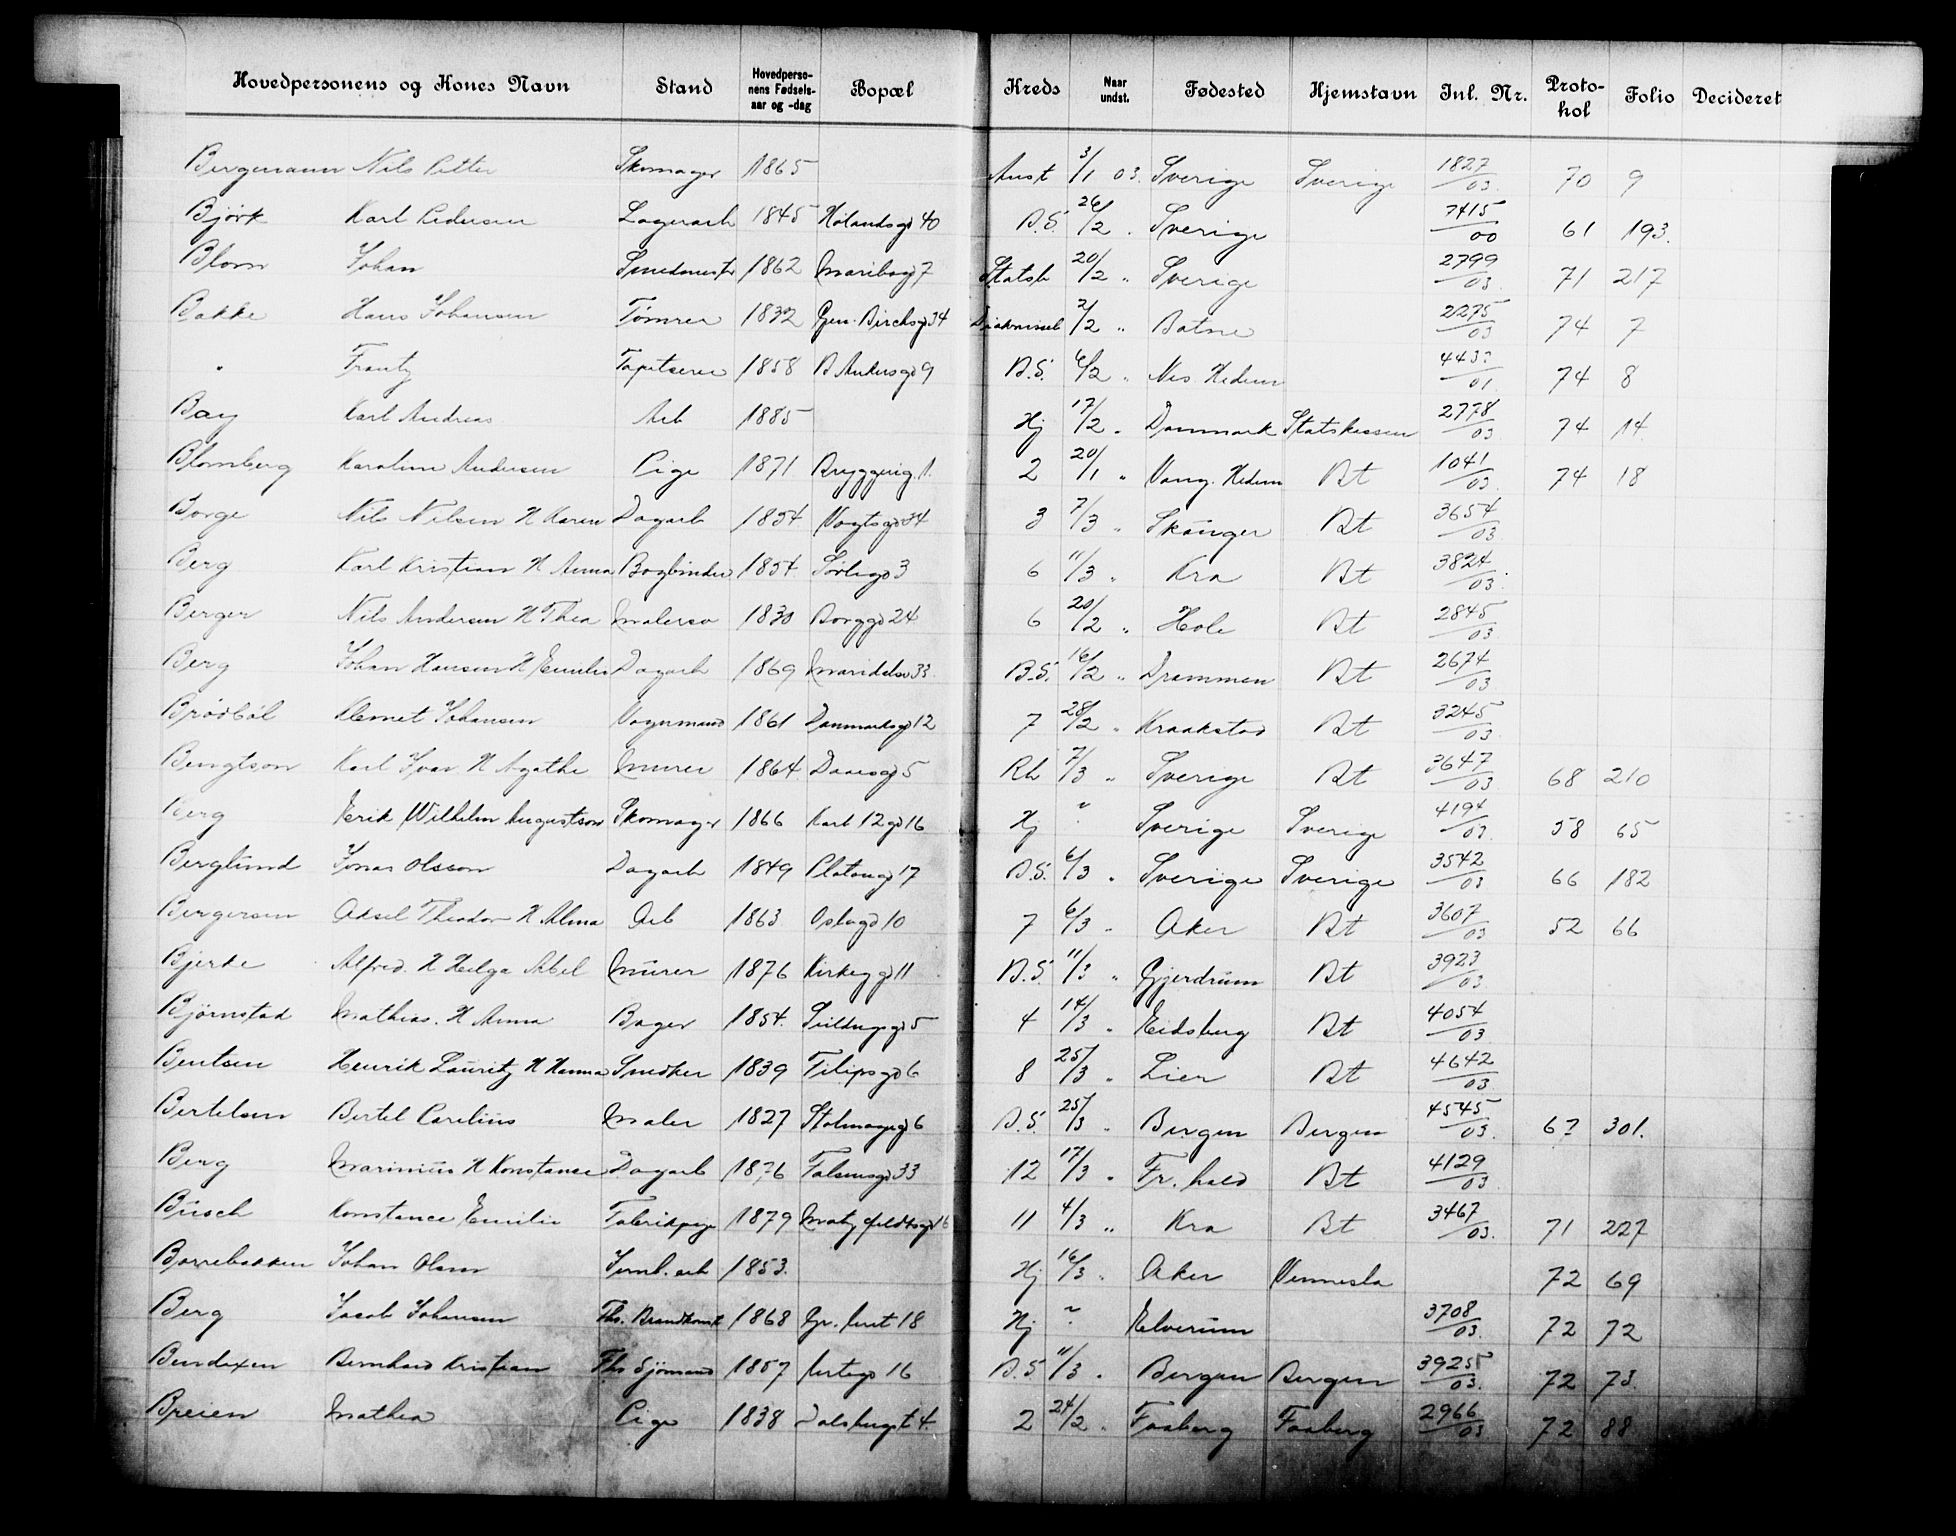 Hovedpersonens og Kones Navn Stand Hovedpersonens Fødselsaar og -dag Bopæl Kreds Naar undst. Fødested Hjemstavn Inl. Nr. Protokol Folio Decideret
Bergemann Nils Petter Skomager 1865 Anst 3/1 03. Sverige Sverige 1827/03 70 9
Bjørk Karl Pedersen Lagerarb 1845 Hølandsgd 40 B.S. 26/2 . Sverige 7415/00 61 193.
Blom Johan Smedmestr 1862 Maribogd 7 Statsb 20/2 " Sverige 2799/03. 71 217
Bakke Hans Johansen Tømrer 1832 Gen. Birchsgd 34 2/2 " Botne 2275/03 74 7
" Frantz Tapetserer 1858 B Ankersgd 9 B.S. 6/2 " Nes Hedem 443?/01. 74 8
Bay Karl Andreas Arb 1885 Hj 17/2 " Danmark Statskassen 2778/03 74 14
Blomberg Karoline Andersen Pige 1871 Bryggerig. 1. 2 20/1 " Vang. Hedem Bt 1041/03. 74 18
Borge Nils Nilsen H Karen Dagarb 1854 Vogtsgd 34 3 7/3 " Skånger Bt 3654/03
Berg Karl Kristian H Anna Bogbinder 1854 Sørligd 3 6 11/3 " Kra Bt 3824/03.
Berger Nils Andersen H Thea Malersv 1830 Borggd 24 6 20/2 " Hole Bt 2845/03
Berg Johan Hansen H Emilie Dagarb 1869 Maridalsv 33 B.S. 16/2 " Drammen Bt 2674/03
Brödböl Klemet Johansen Vognmand 1861 Danmarksgd 12 7 28/2 " Kraakstad Bt 3245/03.
Bengtson Karl Ivar. H Agathe Murer 1864 Daasgd 5 Rh 7/3 " Sverige Bt 3647/03 68 210
Berg Erik Wilhelm Augustson Skomager 1866 Karl 12 gd 16 Hj " Sverige Sverige 4194/03. 58 65
Berglund Jonas Olsson Dagarb 1849 Platougd 17 B.S. 6/3 " Sverige Sverige 3542/03 66 182
Bergersen Adsel Theodor H Alma Arb 1863 Oslogd 10 7 6/3 " Aker Bt 3607/03 52 66
Bjerke Alfred. H Helga Abel Murer 1876 Kirkegd 11 B.S. 11/3 " Gjerdrum Bt 3923/03
Bjørnstad Mathias. H Anna Bager 1854. 4 14/3 " Eidsberg Bt 4054/03
Bentsen Henrik Lauritz H Hanna Snedker 1839 Filipsgd 6 8 25/3 " Lier Bt 4642/03
Bertelsen Bertel Carelius Maler 1827 Stolmagergd 6 B.S. 25/3 " Bergen Bergen 4545/03. 6? 301.
Berg Marinius H Konstance Dagarb 1876 Falsensgd 33 12 17/3 " Fr. hald Bt 4129/03
Busch Konstance Emilie Fabrikpige 1879 11 4/3 " Kra Bt 3467/03. 71 227
Borrebakken Johan Olsen Jernb. arb 1853. Hj 16/3 " Aker Vennesla 72 69
Berg Jacob Johansen Fhv. Brandkonst 1868 Gr. leret 18 Hj " Elverum 3708/03. 72 72
Bendixen Bernhard Kristian Fhv Sjømand 1857 16 B.S 11/3 " Bergen Bergen 3925/03. 72 73.
Breien Mathea Pige 1838 Dalsbergst 4. 2 24/2 " Faaberg Faaberg 2966/03 72 88